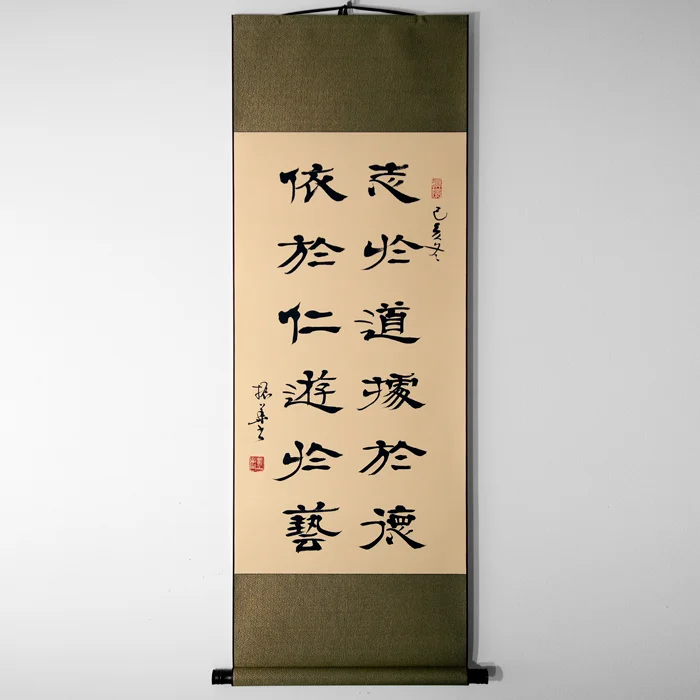 己亥冬
志於道據於德
依於仁遊於藝
振華書